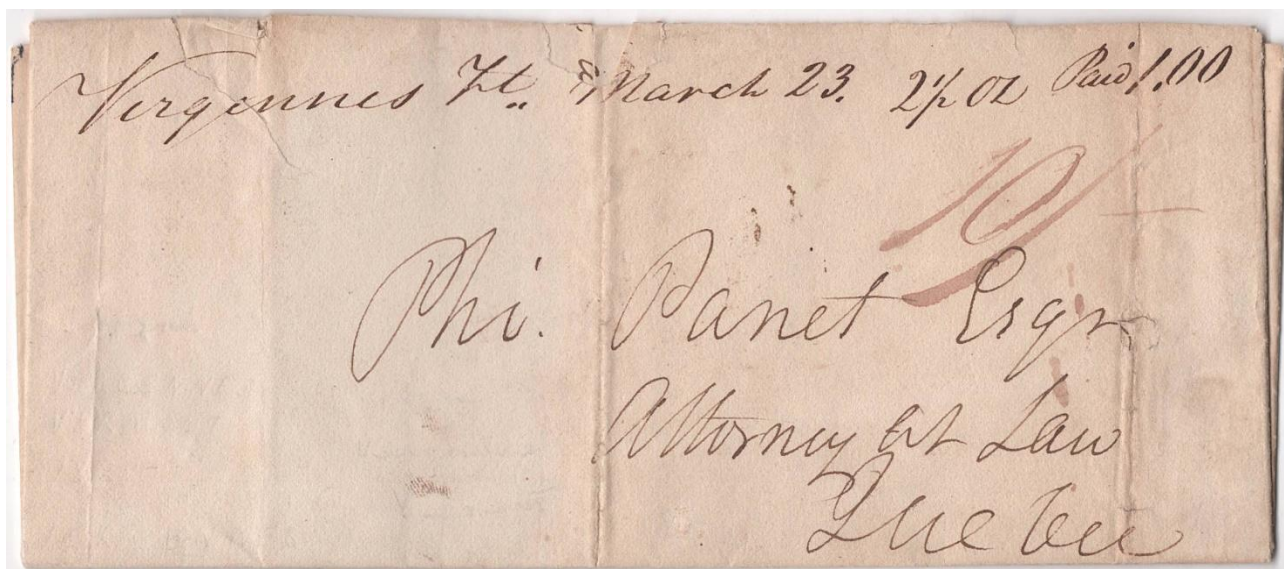 Vergennes Vt. March 23. 2½ oz Paid 1.00
Phi. Panet Esqr
Attorney at Law
Quebec